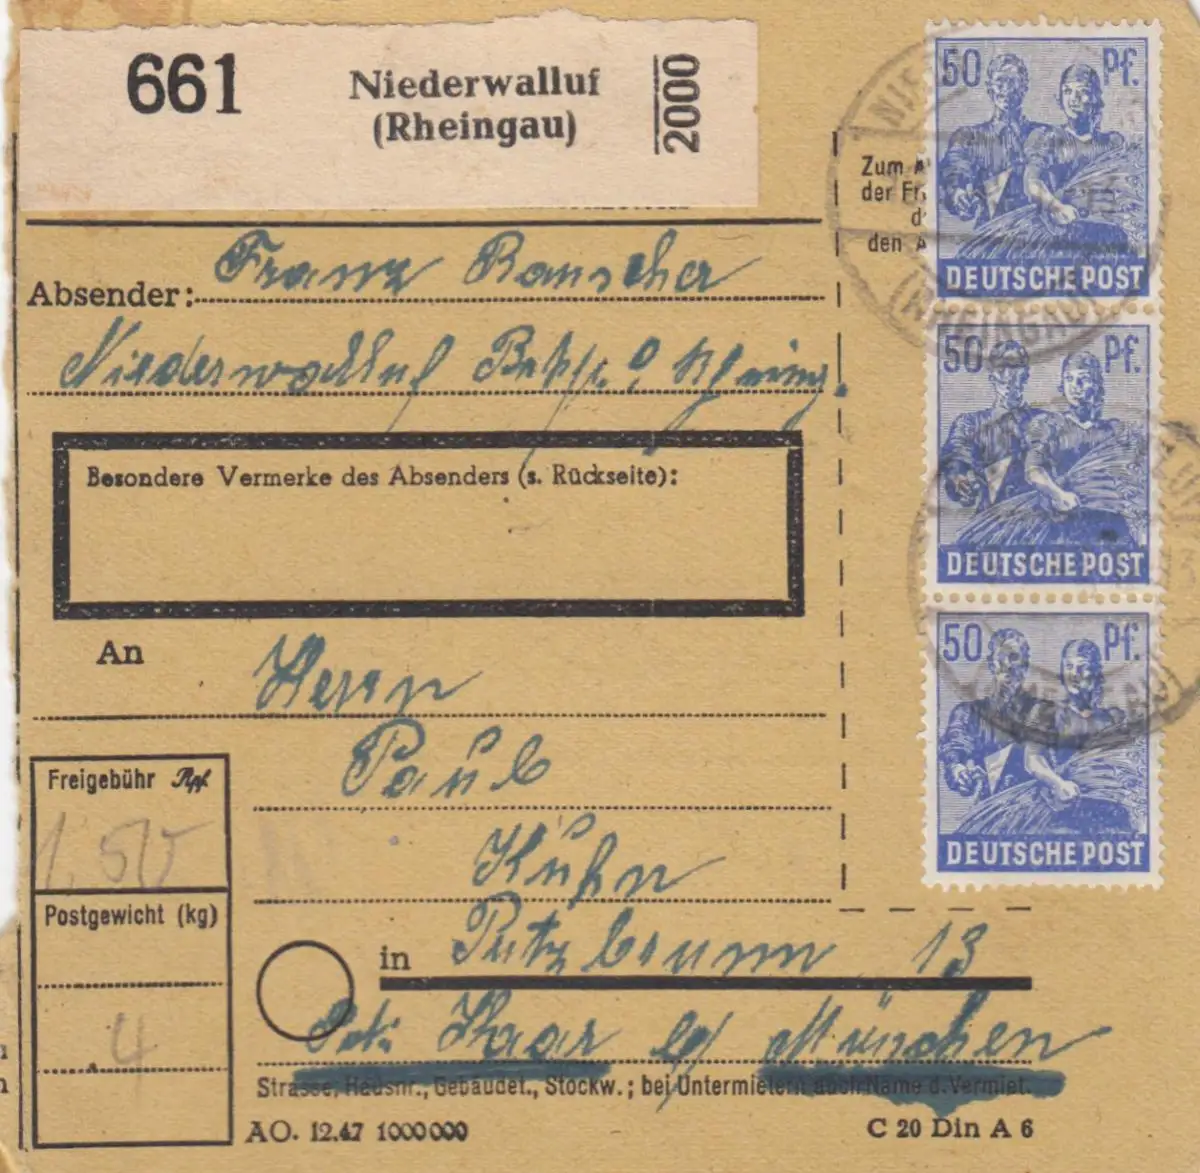 661 Niederwalluf
(Rheingau) 2000
50 Pf.
DEUTSCHE POST
50 Pf.
DEUTSCHE POST
50 Pf.
DEUTSCHE POST
(RHEINGAU)
Zum
der
den
Absender: Franz Rauscher
Niederwalluf
Besondere Vermerke des Absenders (s. Rückseite):
An Herrn
Paul
Kühn
in Putzbrunn 13
Haar b/ München
Strasse, Hausnr., Gebäudet., Stockw.; bei Untermietern auch Name d. Vermiet.
Freigebühr Rpf
1.50
Postgewicht (kg)
4
AO. 12.47 1000000
C 20 Din A 6